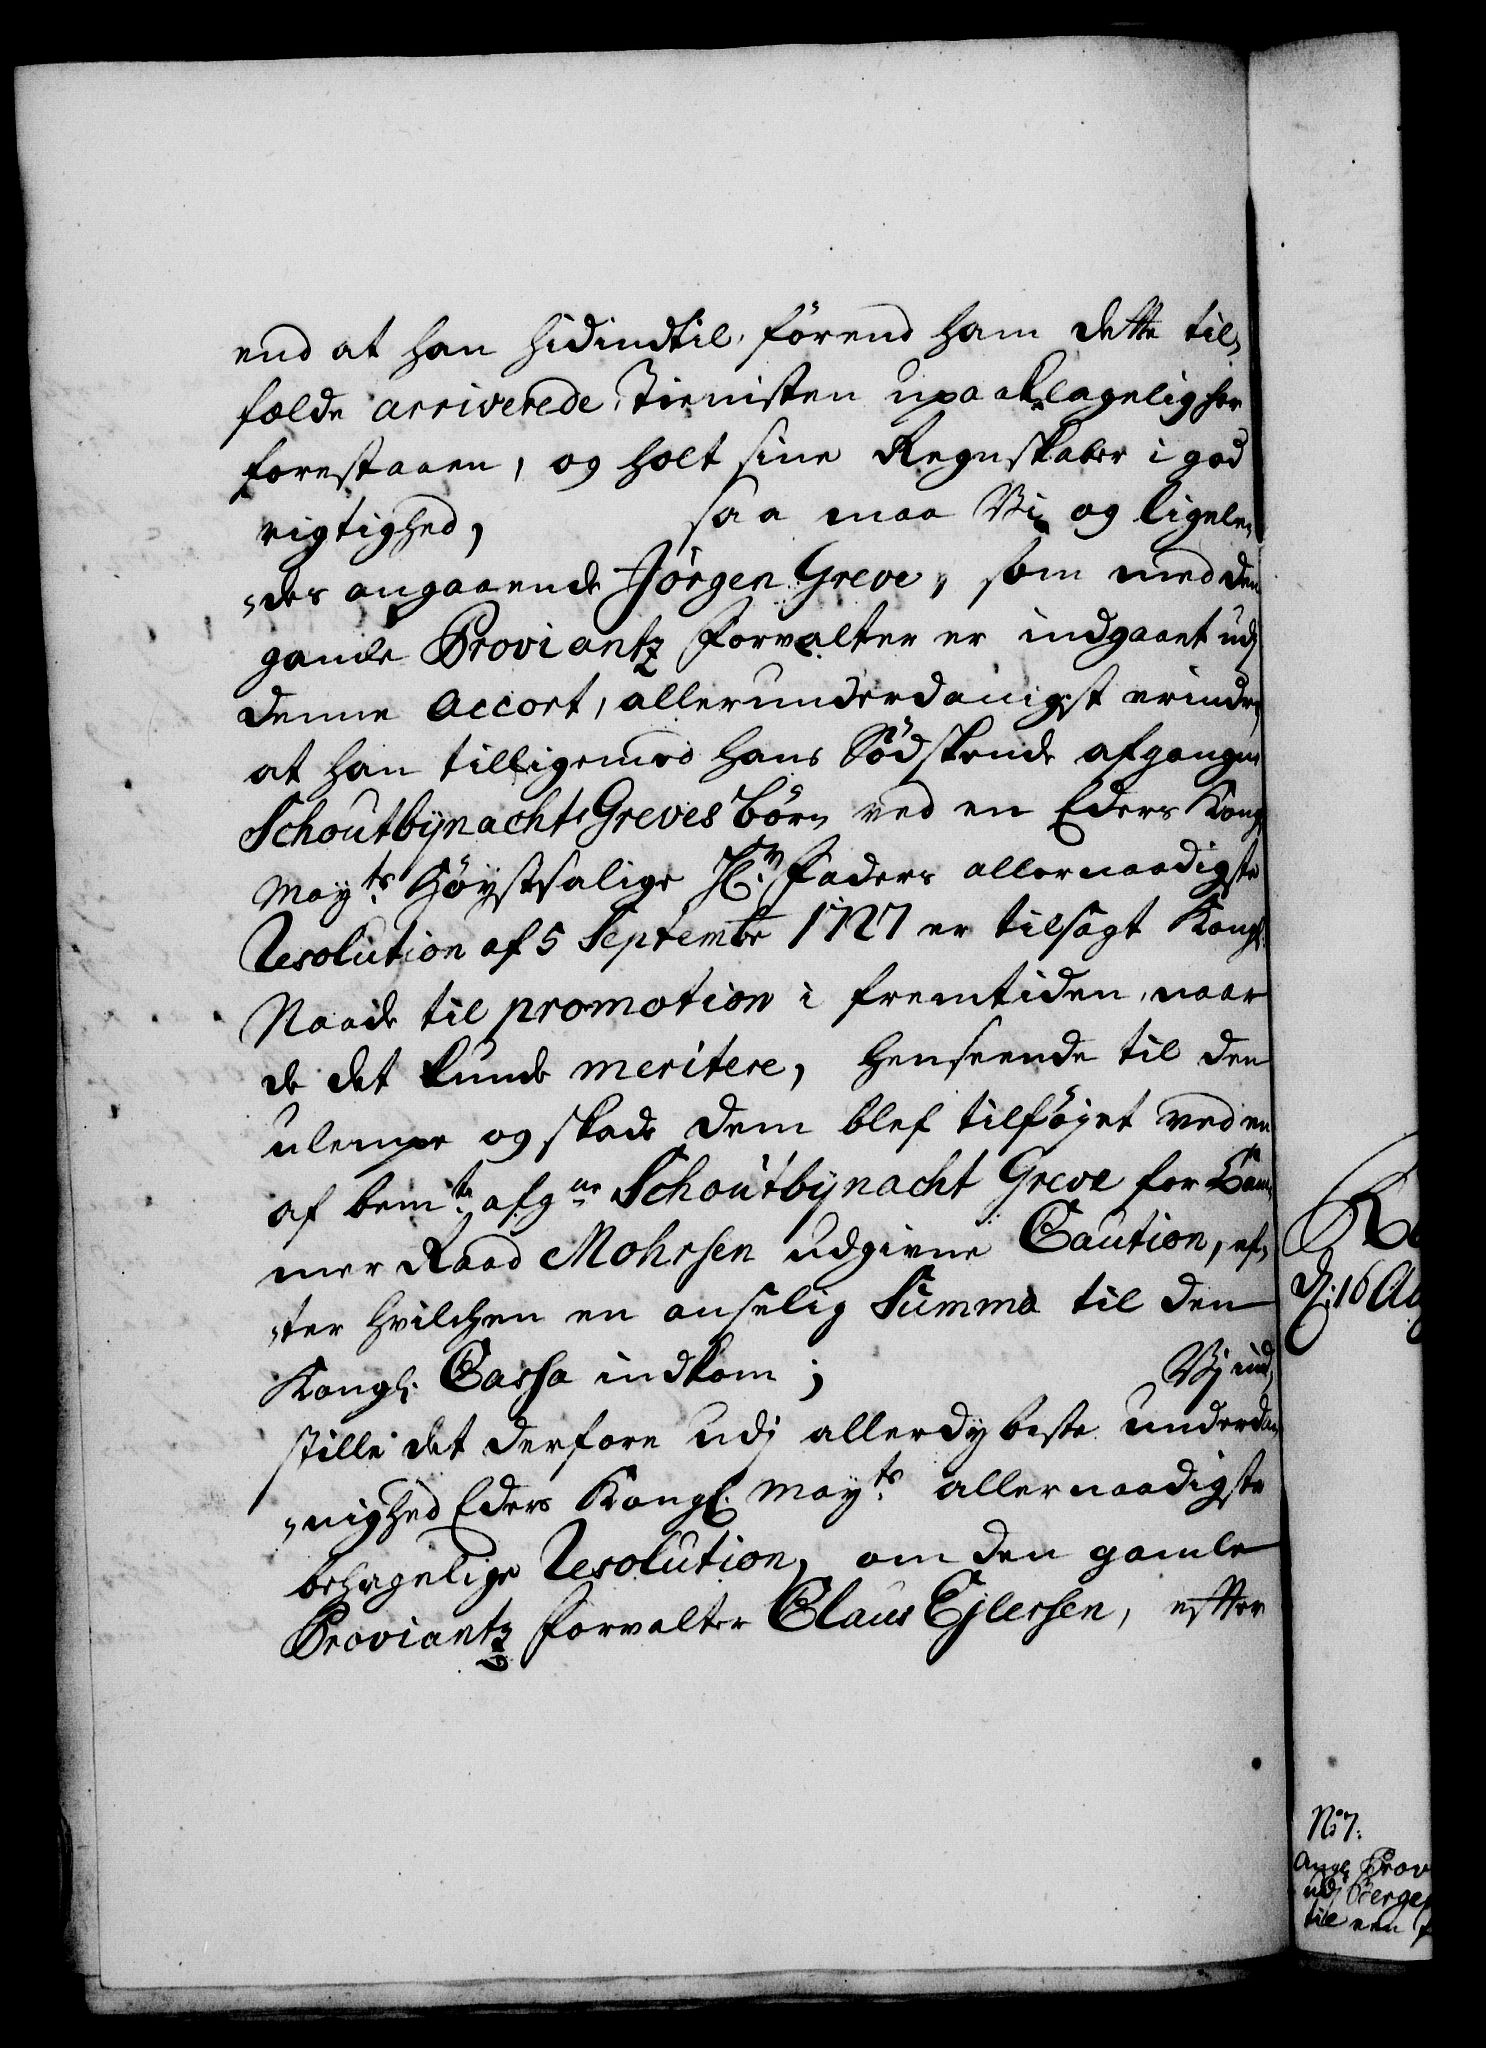 end at han hidindtil, förend ham dette til,
fælde arriverede, Tienisten upaaklagelig har
forestaaen, og holt sine Regnskaber i god
rigtighed, saa maa Vi og ligele,
,des angaaende Jörgen Greve, som med den
gamle Proviantz Forvalter er indgaaet udj
denne Accort, allerunderdanigst erindre,
at han tilligemed hans Södskende afgangne
Schoutbynacht Greves börn ved en Eders Kongl.
Mayts. Höystsalige Hr. Faders allernaadigste
Resolution af 5 Septembr 1727 er tilsagt Kongl.
Naade til promotion i fremtiden, naar
de det kunde meritere, henseende til den
ulempe og skade dem blef tilföjet ved en
af bemte. afgne Schoutbynacht Greve for Cam,
mer Raad Mohrsen udgivne Caution, ef,
,ter hvilchen en anselig Summa til den
Kongl. Cassa indkom; Vj ind,
stille det derfore udj allerdybeste underda,
,nighed Eders Kongl. Mayts. allernaadigste
behagelige Resolution, om den gamle
Proviantz Forvalter Claus Ejlersen, efter
d. 16 Au
No 7.
Angl. Prov
udj Berge
til een